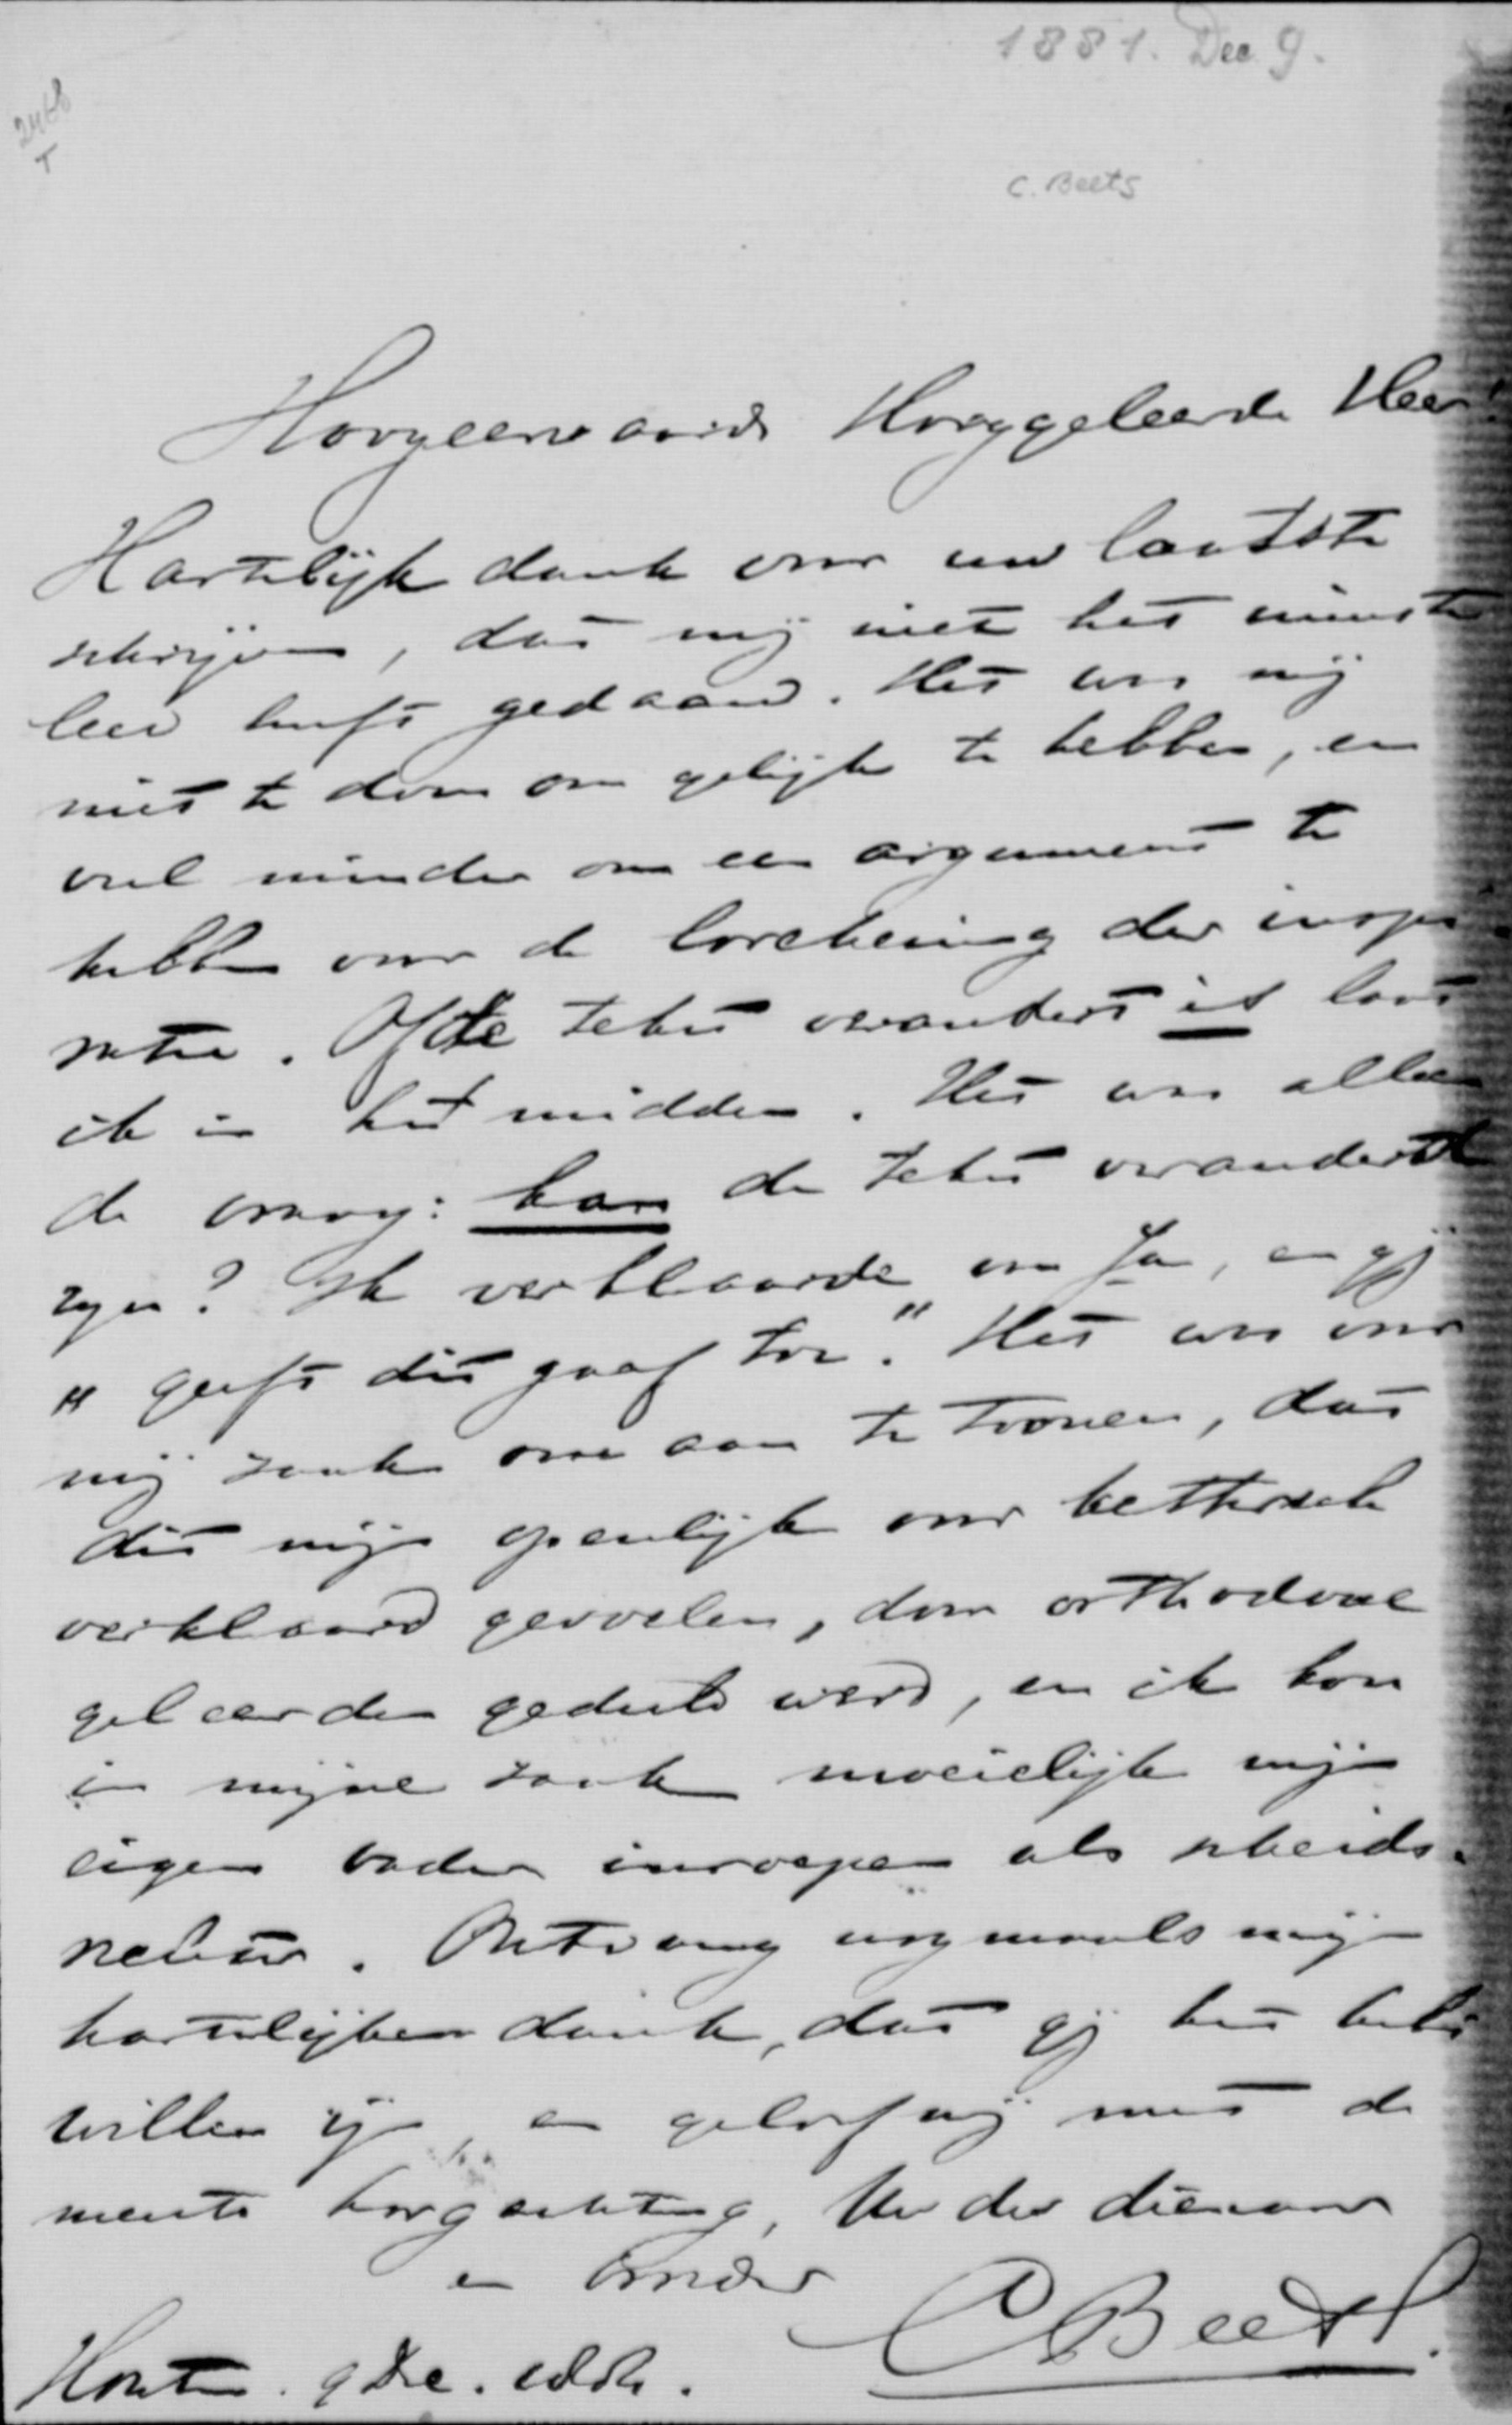 1881. Dec. 9.
C. Beets
Hoogeerwaarde Hooggeleerde Heer!
Hartelijk dank voor uw laatste
schrijven, dat mij niet het minste
leed heeft gedaan. Het was mij
niet te doen om gelijk te hebben, en
veel minder om een argument te
hebben voor de loochening der inspi-
ratie. Of de tekst veranderd is laat
ik in het midden. Het was alleen
de vraag: kan de tekst veranderd
zijn? Ik verklaarde van Ja, en gij
"geeft dit gaaf toe." Het was voor
mij zaak om aan te toonen, dat
dit mijn openlijk voor kettersch
verklaard gevoelen, door orthodoxe
geleerden gedeeld werd, en ik kon
in mijne zaak moeielijk mijn
eigen vader inroepen als scheids-
rechter. Ontvang nogmaals mijn
hartelijken dank, dat gij het hebt
willen zijn, en geloof mij met de
meeste hoogachting, Uw dw dienaar
en broeder
C Beets.
Houten. 9 Dec.